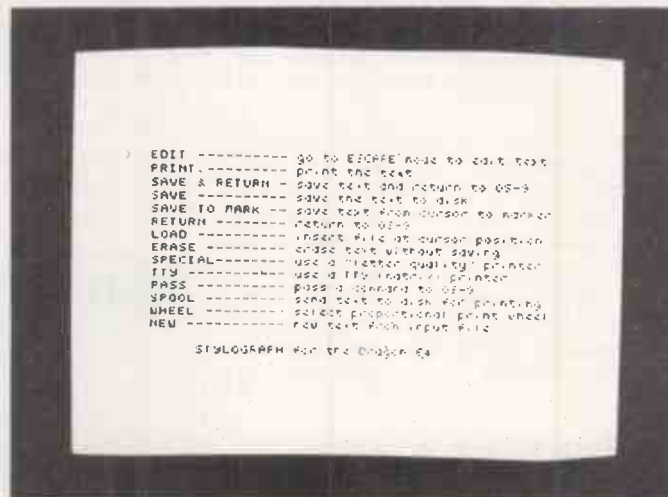 > EDIT ---------- go to ESCAPE mode to edit text
PRINT ---------- print the text
SAVE & RETURN - save text and return to OS-9
SAVE ---------- save the text to disk
SAVE TO MARK -- save text from cursor to marker
RETURN --------- return to OS-9
LOAD ----------- insert file at cursor position
ERASE ---------- erase text without saving
SPECIAL--------- use a "letter quality" printer
TTY ------------ use a TTY (matrix) printer
PASS ----------- pass a command to OS-9
SPOOL ---------- send text to disk for printing
WHEEL ---------- select proportional print wheel
NEW ------------ new text from input file
STYLOGRAPH for the Dragon 64